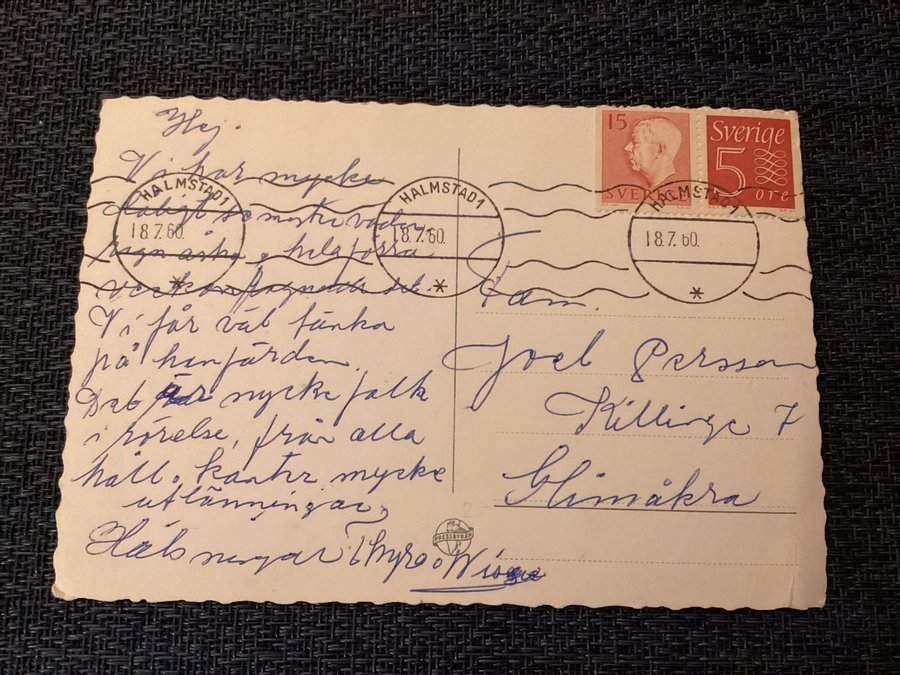 Hej.
Vi har mycke
dåligt semesterväder
regn åska, hela förra
veckan
Vi får väl tänka
på hemfärden
Det är mycke folk
i rörelse, från alla
håll o kanter mycke
utlänningar,
Hälsningar Thyra o
15
SVERIGE
Sverige
5
öre
HALMSTAD 1
18.7.60.
HALMSTAD 1
18.7.60.
HALMSTAD 1
18.7.60.
Fam.
Joel Persson
Killinge 7
Glimåkra
PRESSBYRÅN